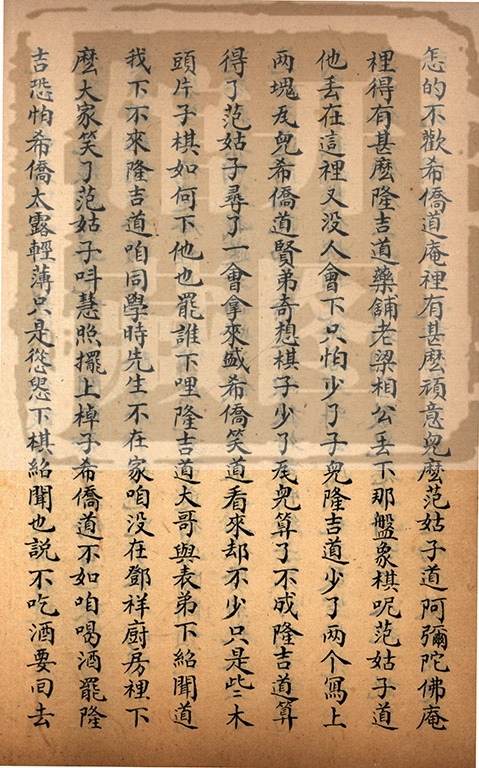 怎的不歡希僑道庵裡有甚麽頑意兒麽范姑子道阿彌陀佛庵
裡得有甚麽隆吉道藥舖老梁相公丟下那盤象棋呢范姑子道
他丢在這裡又没人會下只怕少了子兒隆吉道少了两个寫上
两塊瓦兒希僑道賢弟竒想棋子少了瓦兒算了不成隆吉道算
得了范姑子尋了一會拿來盛希僑笑道看來却不少只是些木
頭片子棋如何下他也罷誰下哩隆吉道大哥與表弟下紹聞道
我下不來隆吉道咱同學時先生不在家咱没在鄧祥廚房裡下
麽大家笑了范姑子呌慧照擺上棹子希僑道不如咱喝酒罷隆
吉恐怕希僑太露輕薄只是慫恿下棋紹聞也説不吃酒要囘去